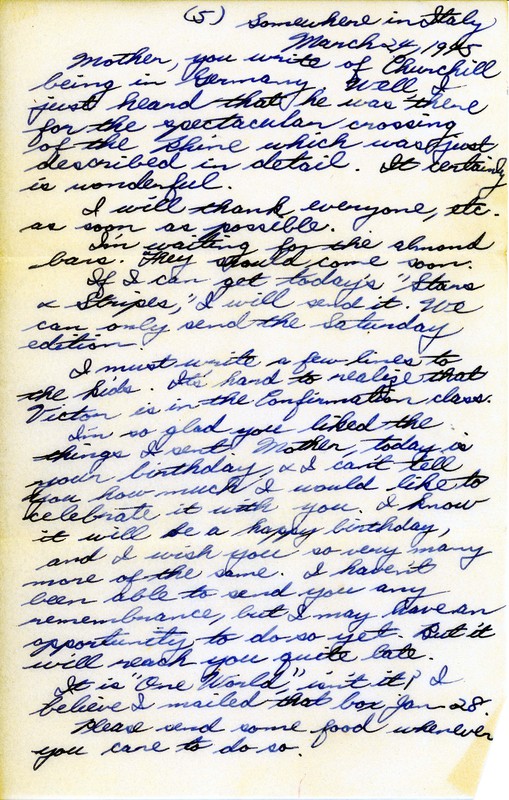 (5) Somewhere in Italy
March 24, 1945
Mother, you write of Churchill
being in Germany. Well I
just heard that he was there
for the spectacular crossing
of the Rhine which was just
described in detail. It certainly
is wonderful.
I will thank everyone, etc.
as soon as possible.
I'm waiting for the almond
bars. They should come soon.
If I can get today's "Stars
& Stripes," I will send it. We
can only send the Saturday
edition.
I must write a few lines to
the kids. It's hard to realize that
Victor is in the Confirmation class.
I'm so glad you liked the
things I sent. Mother, today is
your birthday, & I can't tell
you how much I would like to
celebrate it with you. I know
it will be a happy birthday,
and I wish you so very many
more of the same. I haven't
been able to send you any
remembrance, but I may have an
opportunity to do so yet. But it
will reach you quite late.
It is "One World," isn't it! I
believe I mailed that box Jan 28.
Please send some food whenever
you care to do so.